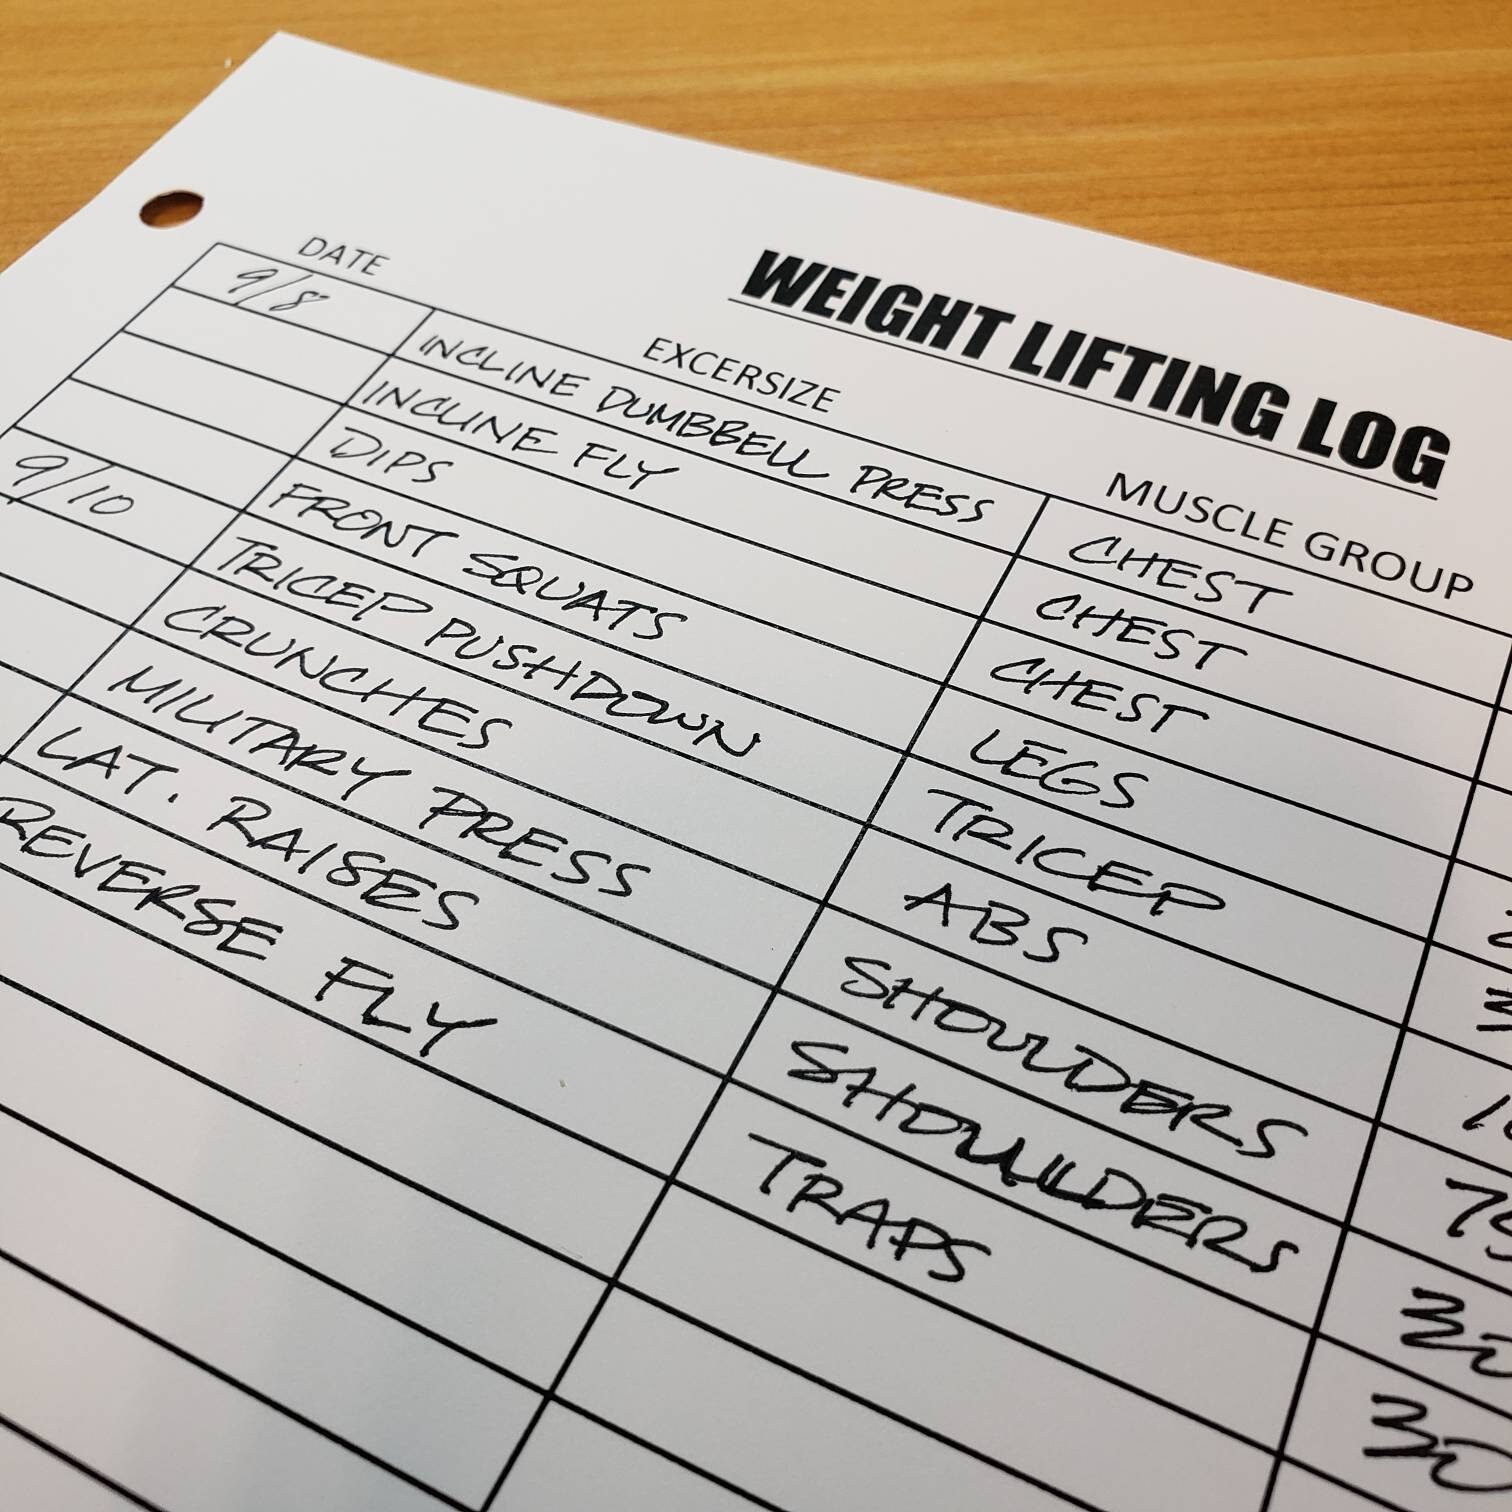 WEIGHT LIFTING LOG
DATE EXCERSIZE MUSCLE GROUP
9/8 INCLINE DUMBBELL PRESS CHEST
INCLINE FLY CHEST
DIPS CHEST
FRONT SQUATS LEGS
9/10 TRICEP PUSHDOWN TRICEP
CRUNCHES ABS
MILITARY PRESS SHOULDERS
LAT. RAISES SHOULDERS
REVERSE FLY TRAPS